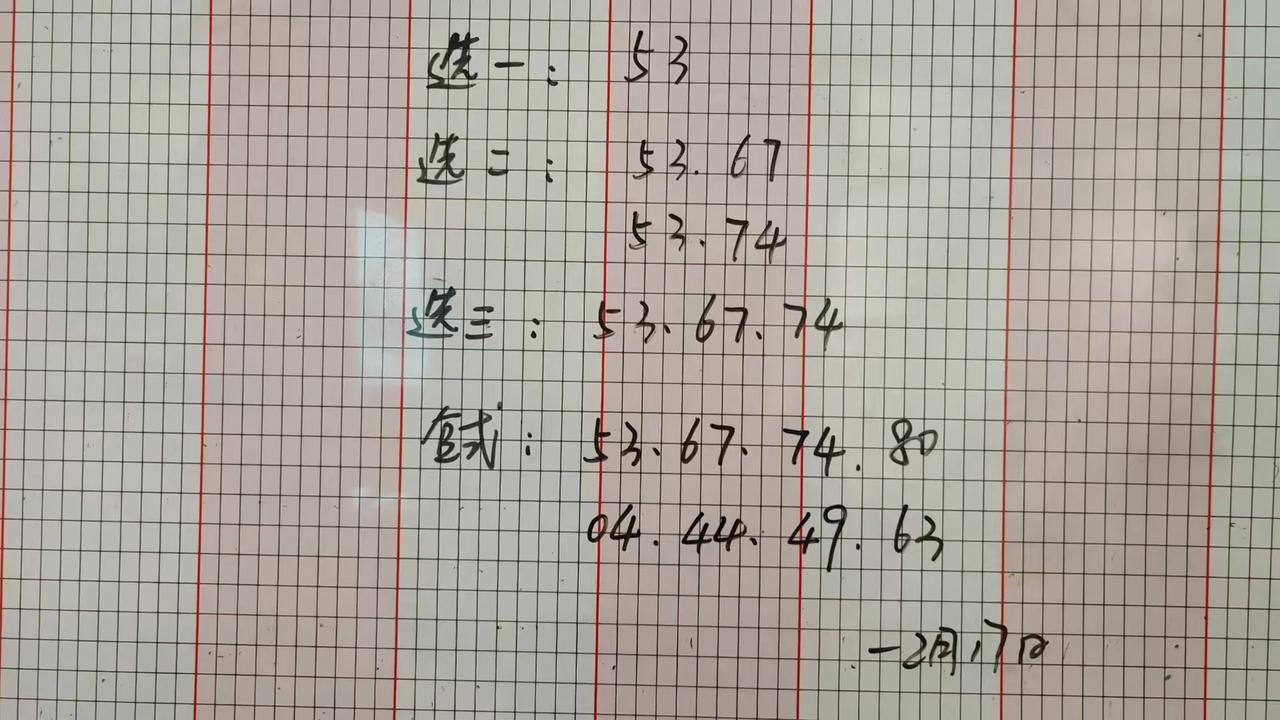 选一: 53
选二: 53. 67
53. 74
选三: 53. 67. 74
复式: 53. 67. 74. 80
04. 44. 49. 63
17日